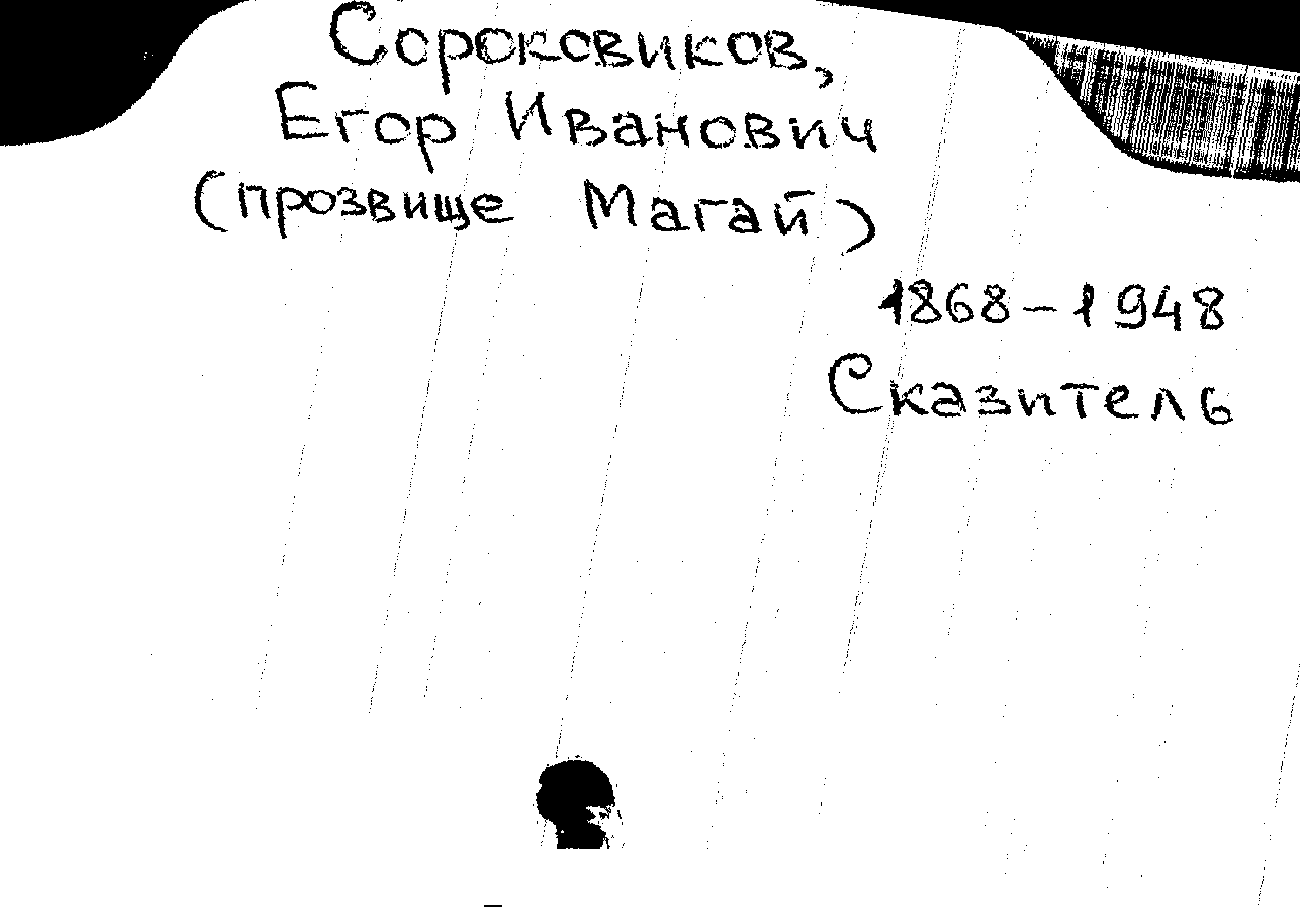 Сороковиков,
Егор Иванович
(прозвище Магай)
1868-1948
Сказитель